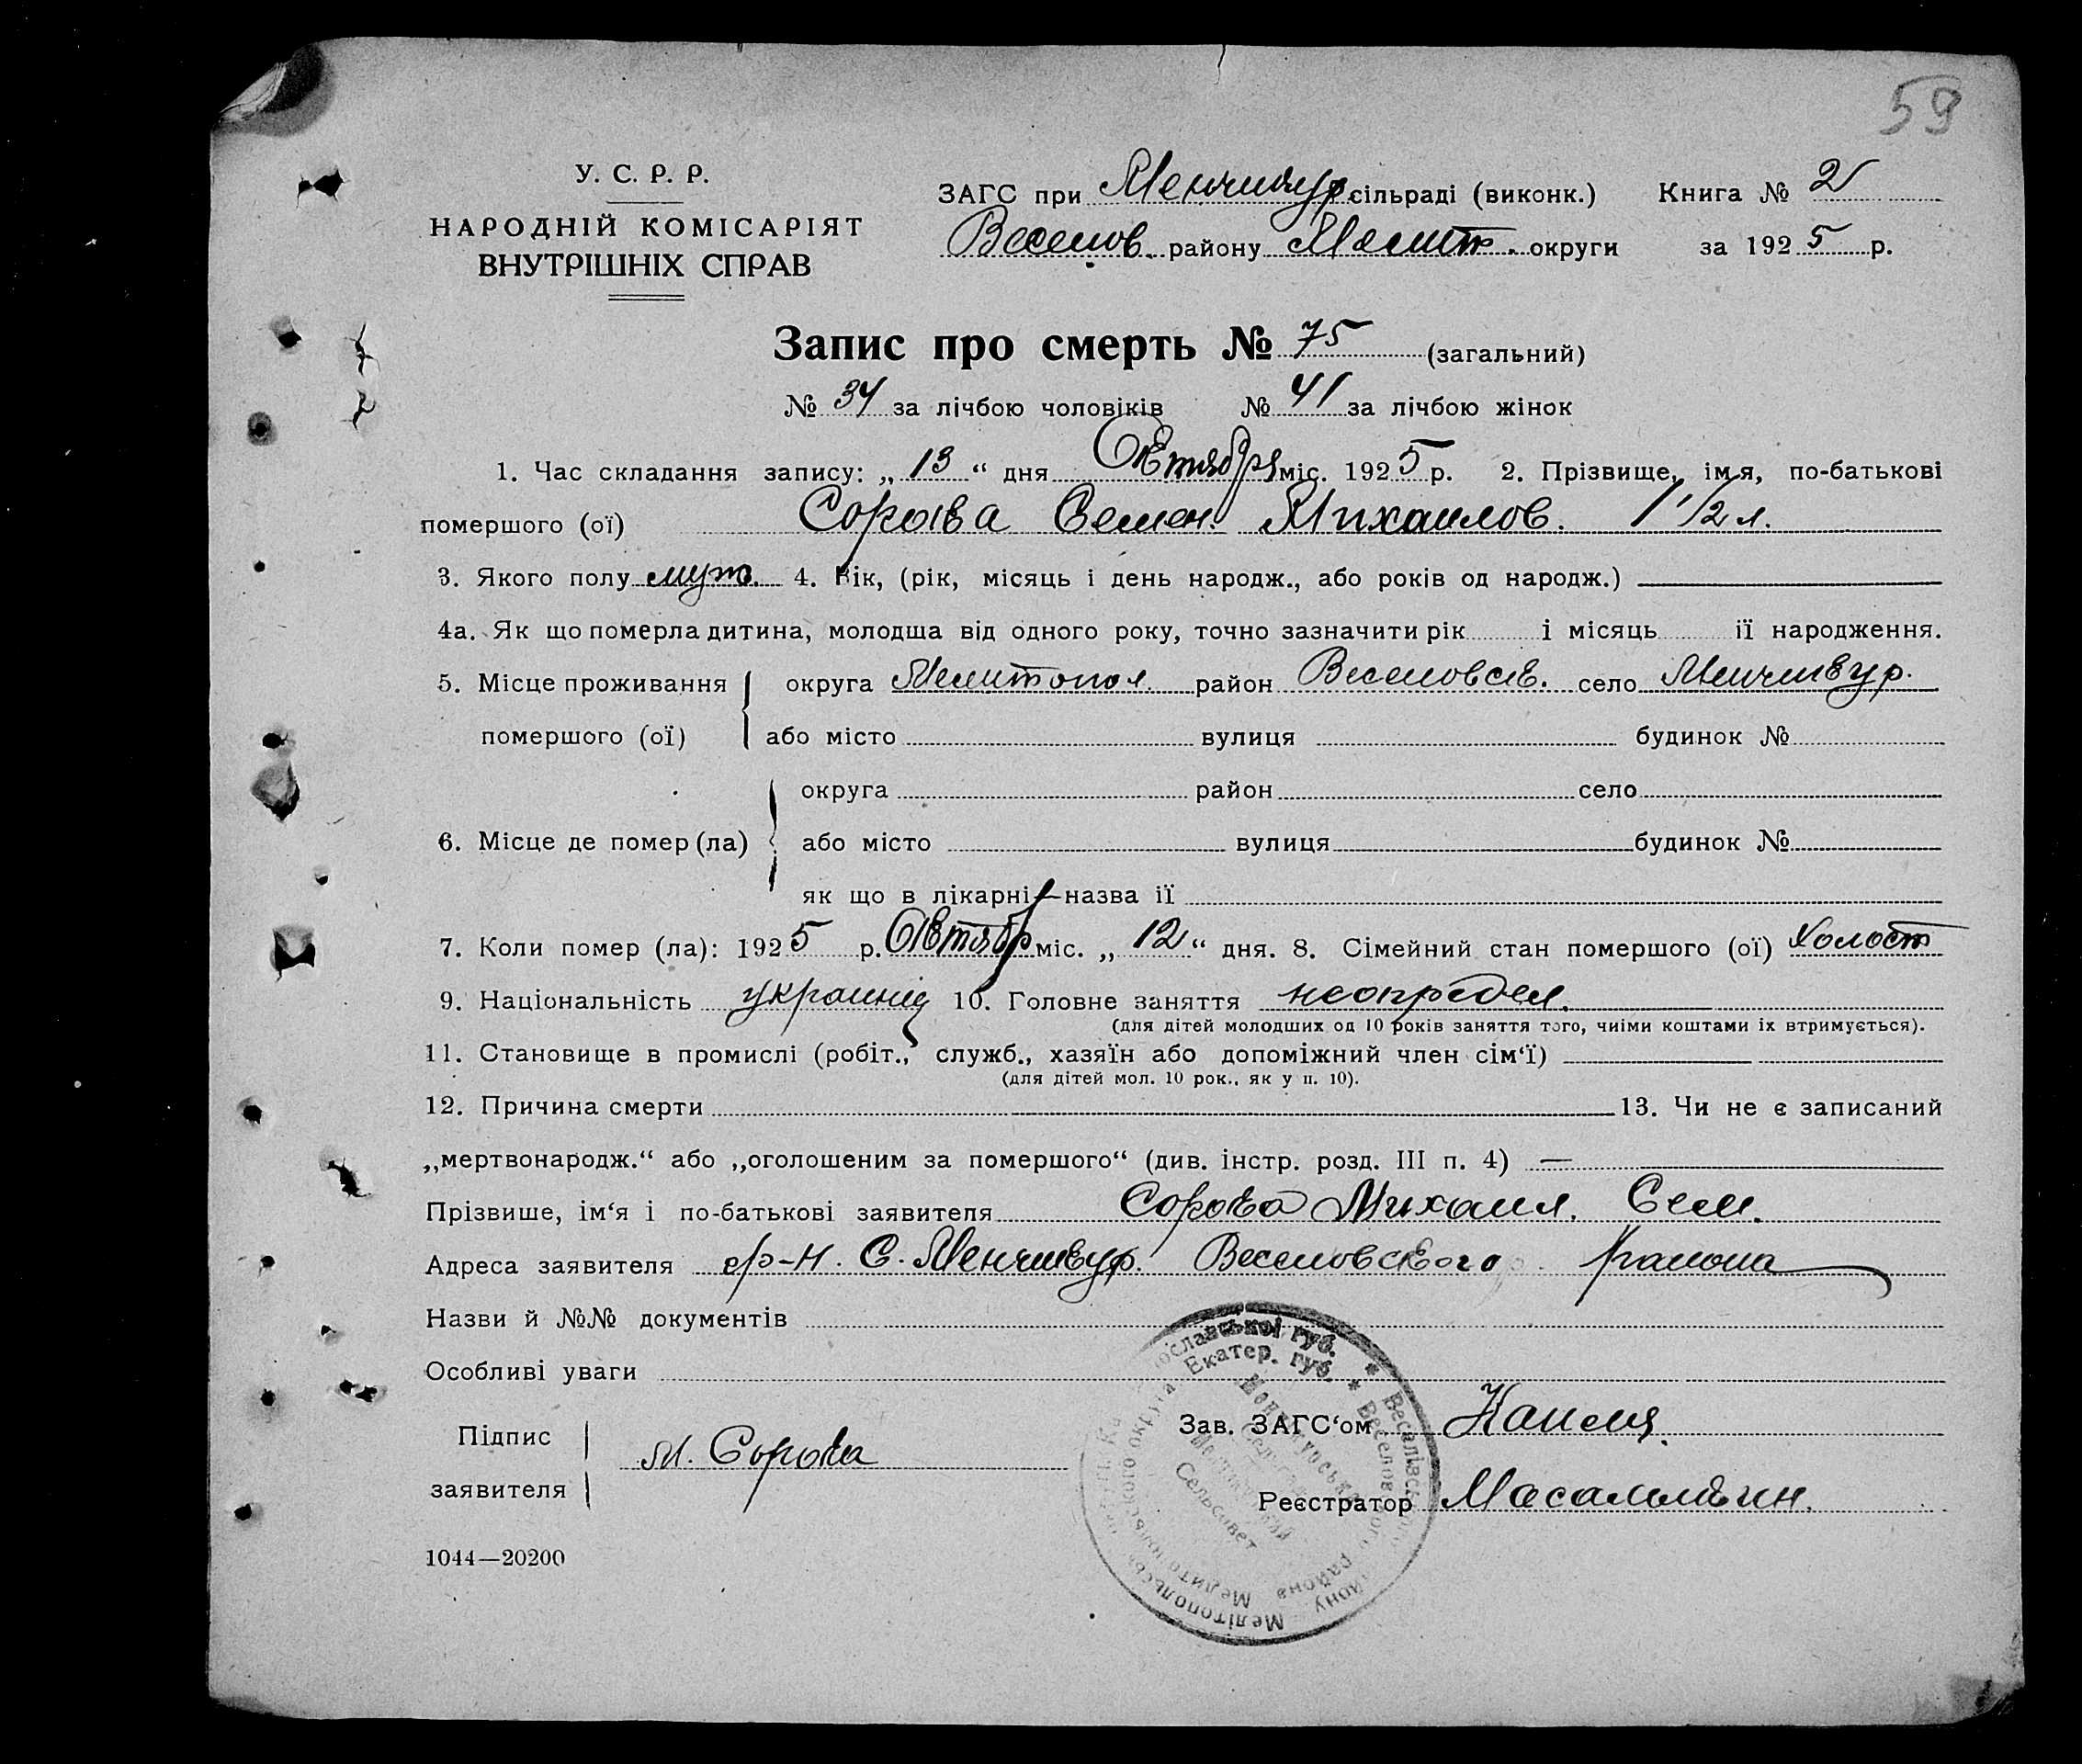 59
У. С. Р. Р.
НАРОДНІЙ КОМІСАРІЯТ
ВНУТРІШНІХ СПРАВ
ЗАГС при Менчикур сільраді (виконк.) Книга № 2
Веселов. району Мелит. округи за 1925 р.
Запис про смерть № 75 (загальний)
№ 34 за лічбою чоловіків № 41 за лічбою жінок
1. Час складання запису: „13“ дня Октября міс. 1925 р. 2. Прізвище, імя, по-батькові
помершого (ої) Сорока Семен. Михаилов. 1 1/2 л.
3. Якого полу муж. 4. Вік, (рік, місяць і день народж., або років од народж.)
4а. Як що померла дитина, молодша від одного року, точно зазначити рік і місяць її народження.
5. Місце проживання округа Мелитопол район Веселовск. село Менчикур.
помершого (ої) або місто вулиця будинок №
округа район село
6. Місце де помер (ла) або місто вулиця будинок №
як що в лікарні—назва її
7. Коли помер (ла): 1925 р. Октябр міс. „12“ дня. 8. Сімейний стан помершого (ої) холост
9. Національність украинец 10. Головне заняття неопредел.
(для дітей молодших од 10 років заняття того, чиїми коштами їх втримується).
11. Становище в промислі (робіт., служб., хазяїн або допоміжний член сім‘ї)
(для дітей мол. 10 рок., як у п. 10).
12. Причина смерти 13. Чи не є записаний
„мертвонародж.“ або „оголошеним за помершого“ (див. інстр. розд. III п. 4) —
Прізвище, ім‘я і по-батькові заявителя Сорока Михаил. Сем.
Адреса заявителя гр-н. С. Менчикур. Веселовского района
Назви й №№ документів
Особливі уваги
Підпис
заявителя М. Сорока
Зав. ЗАГС‘ом
Реєстратор
1044—20200
ославської губ. * Веселівсь йону Мелітопольсь
Екатер. губ. * Веселовского района Мелито польского округа
Сельсовет